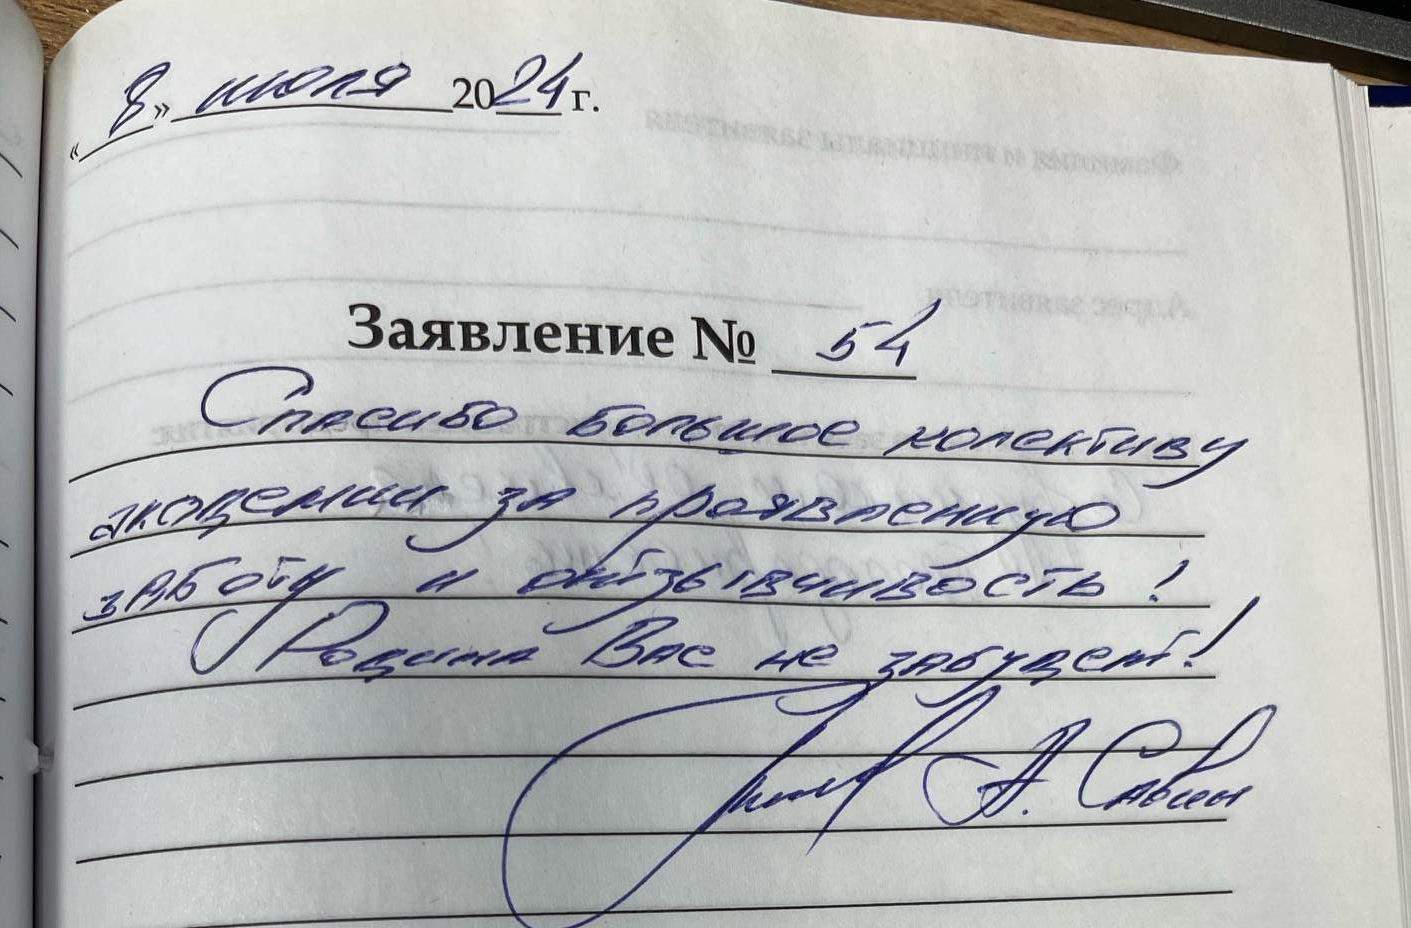 « 8 » июля 2024 г.
Заявление № 54
Спасибо большое колективу
академии за проявленную
заботу и отзывчивость!
Родина Вас не забудет!
А. Савин